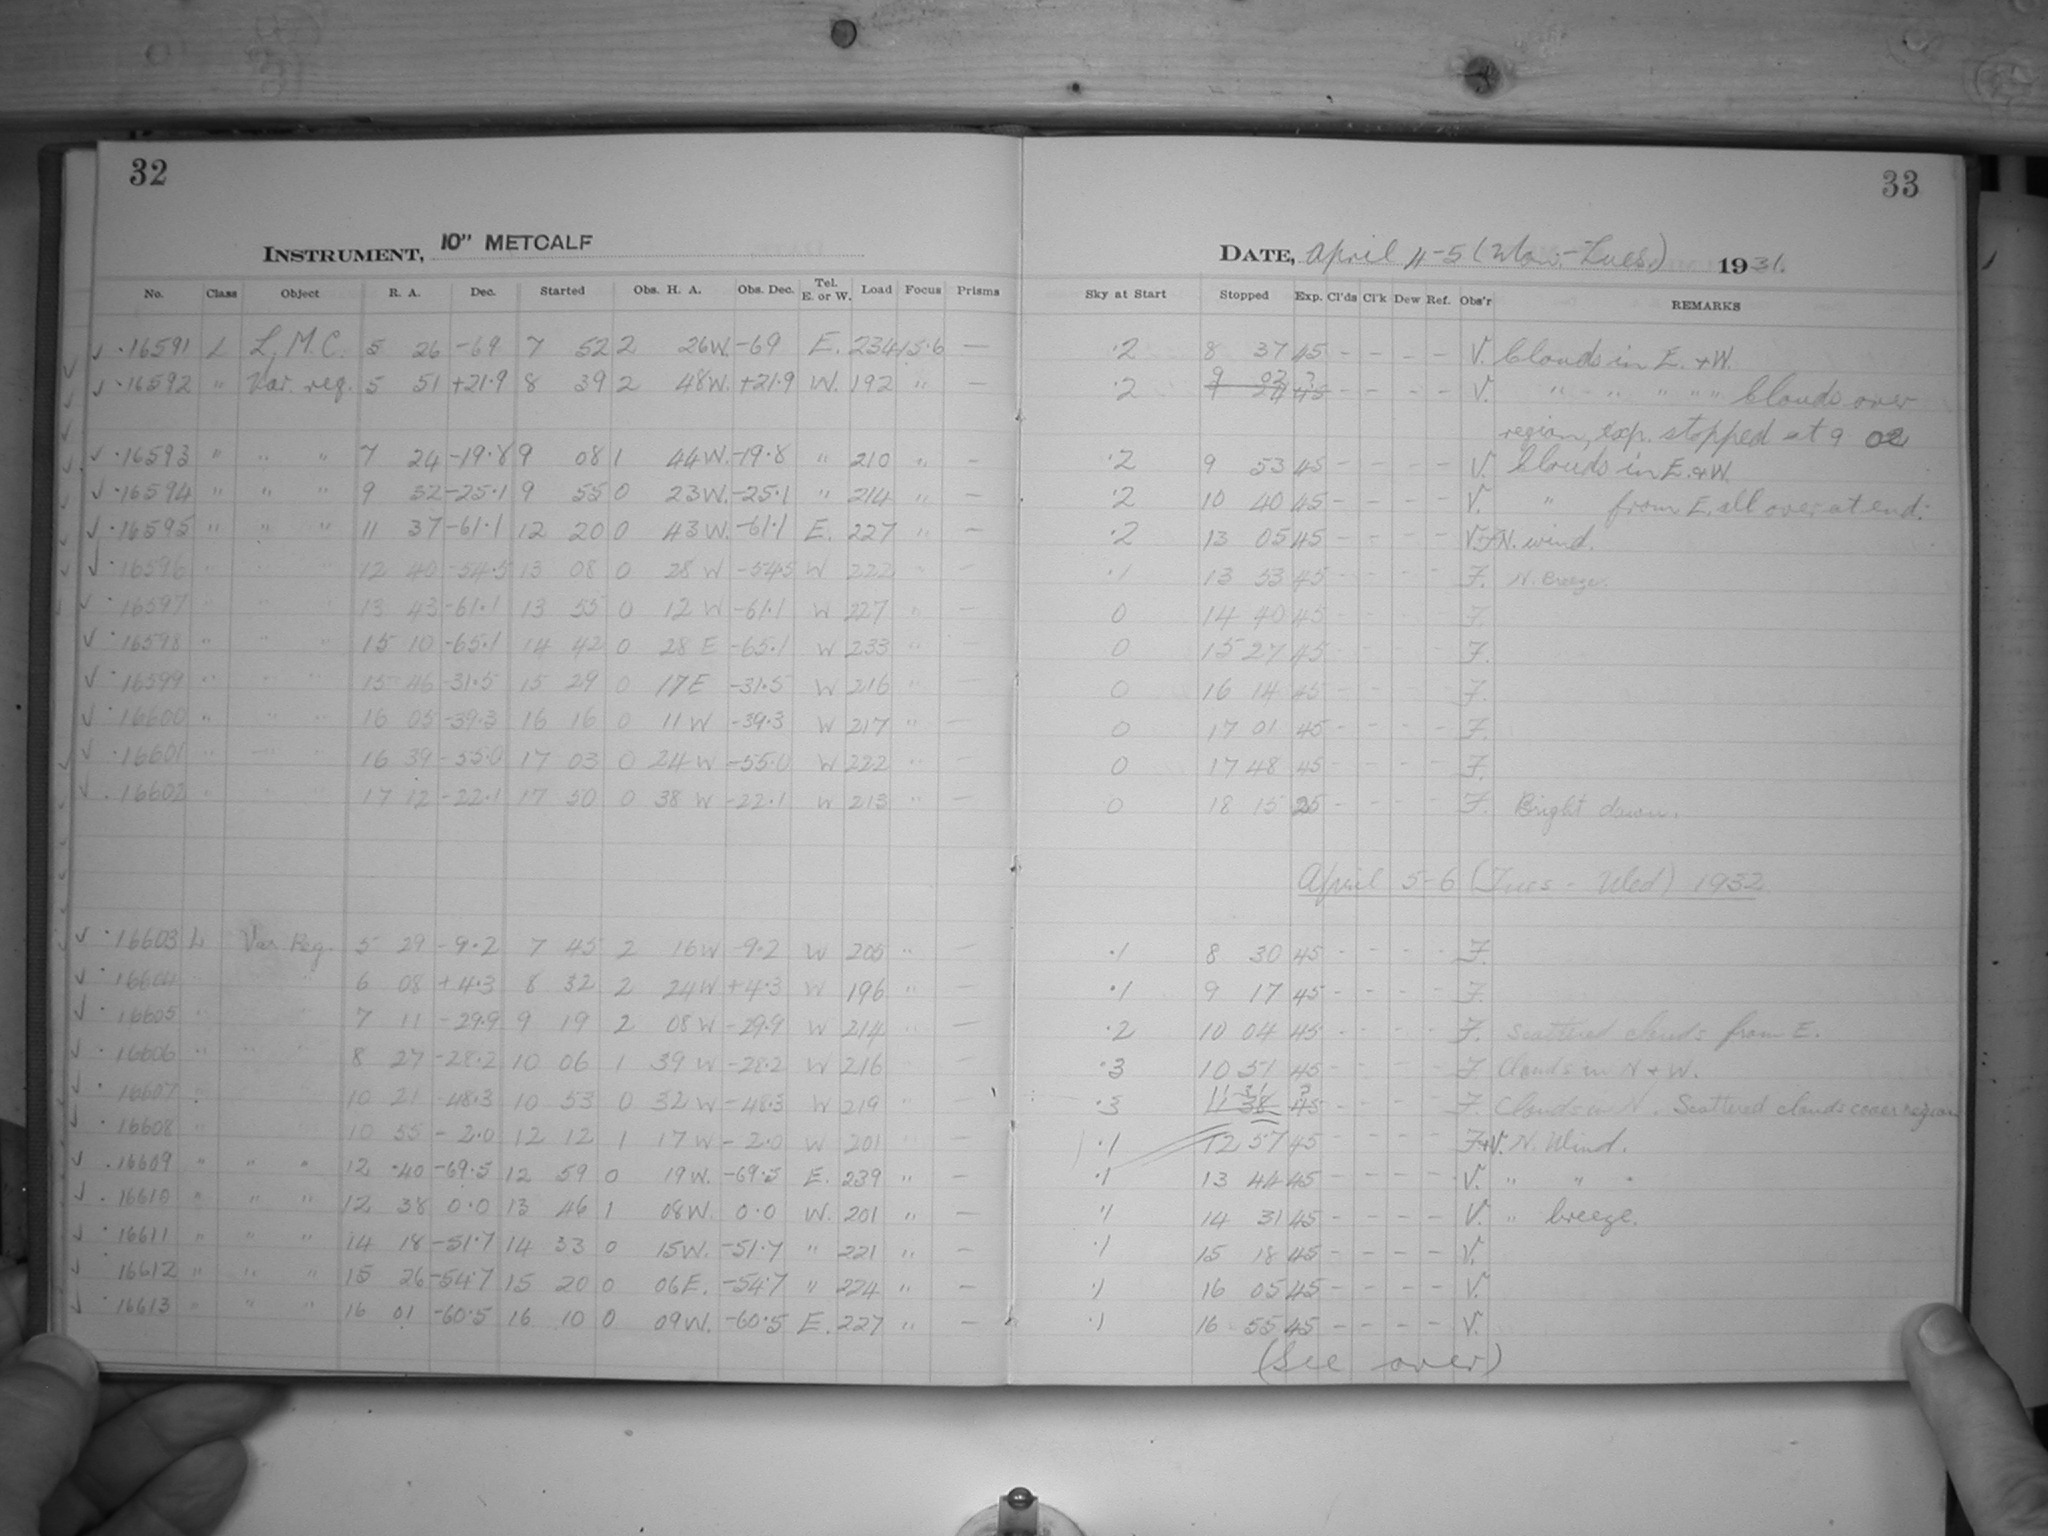 32
33
INSTRUMENT, 10" METCALF
DATE, April 4-5 (Mon.-Tues.) 1931.
No. Class Object R. A. Dec. Started Obs. H. A. Obs. Dec. Tel. E. or W. Load Focus Prisms Sky at Start Stopped Exp. Cl'ds Cl'k Dew Ref. Obs'r REMARKS
√ ·16591 L L.M.C. 5 26 -69 7 52 2 26W. -69 E. 234 15.6 — ·2 8 37 45 - - - - V. Clouds in E. + W.
√ ·16592 " Var. reg. 5 51 +21.9 8 39 2 48W. +21.9 W. 192 " — ·2 9 02 ? V. " - " " " " Clouds over
region, exp. stopped at 9 02
√ ·16593 " " " 7 24 -19.8 9 08 1 44W. -19.8 " 210 " — ·2 9 53 45 - - - - V. Clouds in E. + W.
√ ·16594 " " " 9 32 -25.1 9 55 0 23W. -25.1 " 214 " — ·2 10 40 45 - - - - V. " from E. all over at end.
√ ·16595 " " " 11 37 -61.1 12 20 0 43W. -61.1 E. 227 " — ·2 13 05 45 - - - - V.F N. wind.
√ ·16596 " " " 12 40 -54.5 13 08 0 28 W -54.5 W 222 " — ·1 13 53 45 - - - - F. N. Breeze.
√ ·16597 " " " 13 43 -61.1 13 55 0 12 W -61.1 W 227 " — 0 14 40 45 - - - - F.
√ ·16598 " " " 15 10 -65.1 14 42 0 28 E -65.1 W 233 " — 0 15 27 45 - - - - F.
√ ·16599 " " " 15 46 -31.5 15 29 0 17E -31.5 W 216 " — 0 16 14 45 - - - - F.
√ ·16600 " " " 16 05 -39.3 16 16 0 11W -39.3 W 217 " — 0 17 01 45 - - - - F.
√ ·16601 " " " 16 39 -55.0 17 03 0 24W -55.0 W 222 " — 0 17 48 45 - - - - F.
√ ·16602 " " " 17 12 -22.1 17 50 0 38 W -22.1 W 213 " — 0 18 15 25 - - - - F. Bright dawn.
April 5-6 (Tues - Wed) 1932.
√ ·16603 L Var Reg. 5 29 -9.2 7 45 2 16W -9.2 W 205 " — ·1 8 30 45 - - - - F.
√ ·16604 " " " 6 08 +4.3 8 32 2 24W +4.3 W 196 " — ·1 9 17 45 - - - - F.
√ ·16605 " " " 7 11 -29.9 9 19 2 08 W -29.9 W 214 " — ·2 10 04 45 - - - - F. Scattered clouds from E.
√ ·16606 " " " 8 27 -28.2 10 06 1 39 W -28.2 W 216 " — ·3 10 51 45 - - - - F. Clouds in N + W.
√ ·16607 " " " 10 21 -48.3 10 53 0 32 W -48.3 W 219 " — ·3 11 31 ? F. Clouds in N. Scattered clouds cover region
√ ·16608 " " " 10 55 -2.0 12 12 1 17 W -2.0 W 201 " — ·1 12 57 45 - - - - F+V. N. Wind.
√ ·16609 " " " 12 40 -69.5 12 59 0 19W. -69.5 E. 239 " — ·1 13 44 45 - - - - V. " " "
√ ·16610 " " " 12 38 0.0 13 46 1 08W. 0.0 W. 201 " — ·1 14 31 45 - - - - V. " breeze.
√ ·16611 " " " 14 18 -51.7 14 33 0 15W. -51.7 " 221 " — ·1 15 18 45 - - - - V.
√ 16612 " " " 15 26 -54.7 15 20 0 06E. -54.7 " 224 " — ·1 16 05 45 - - - - V.
√ ·16613 " " " 16 01 -60.5 16 10 0 09W. -60.5 E. 227 " — ·1 16 55 45 - - - - V.
(See over)